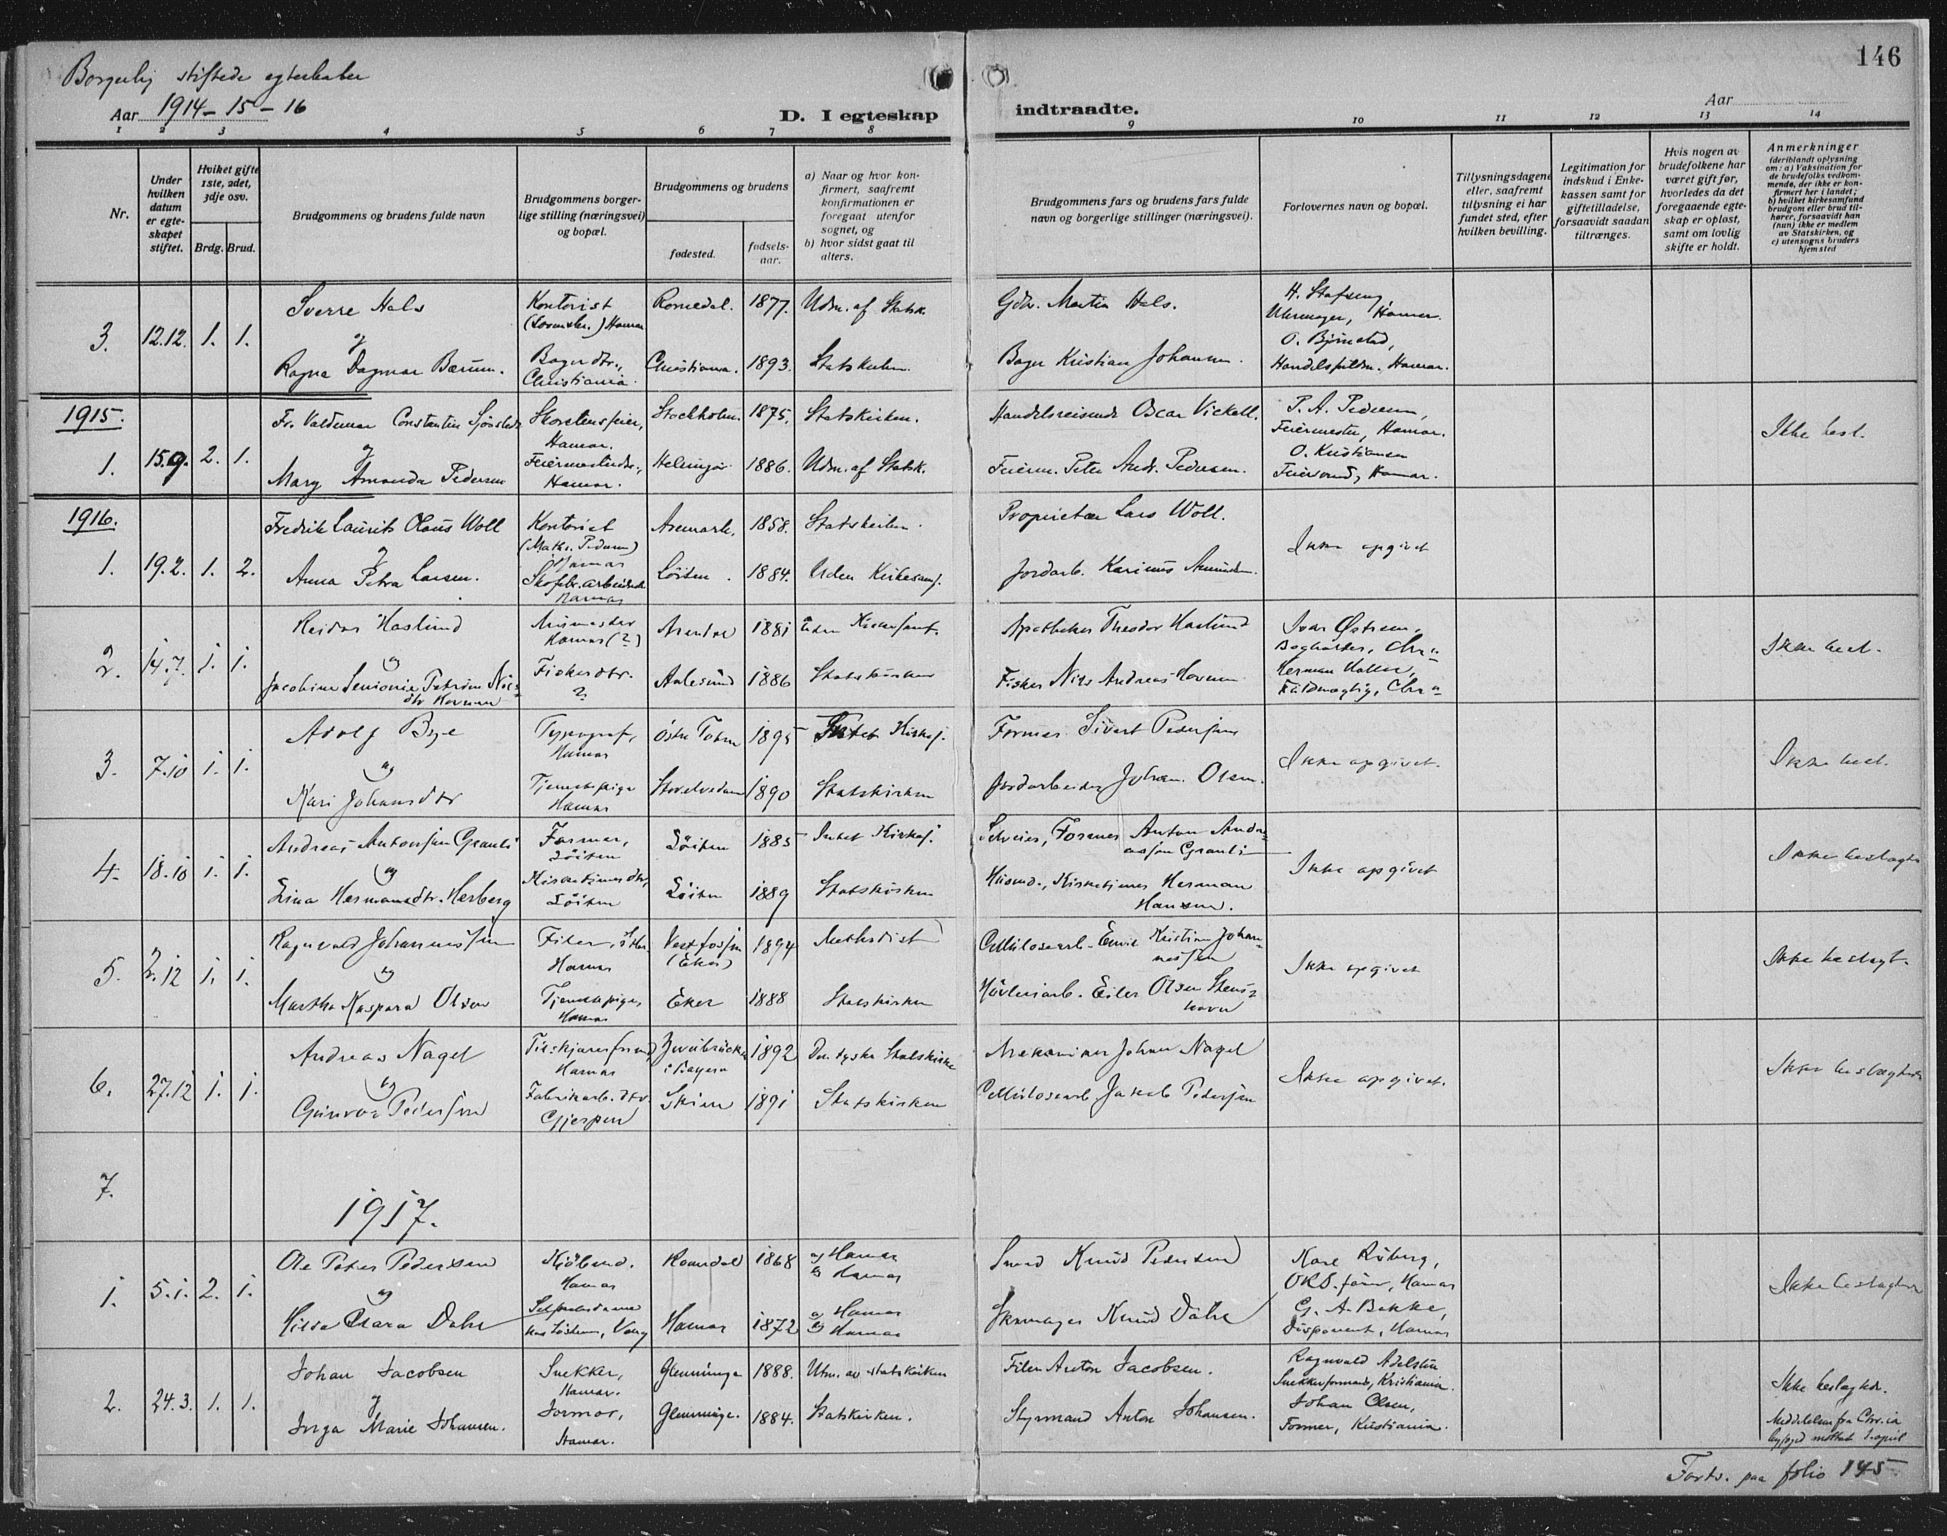 146
Borgerlig stiftede egteskaber
Aar 1914-15-16
D. I egteskap
indtraadte.
Aar
1 2 3 4 5 6 7 8 9 10 11 12 13 14
Nr.
Under hvilken datum er egteskapet stiftet.
Hvilket gifte 1ste, 2det, 3dje osv.
Brdg. Brud.
Brudgommens og brudens fulde navn
Brudgommens borgerlige stilling (næringsvei) og bopæl.
Brudgommens og brudens
fødested.
fødselsaar.
a) Naar og hvor konfirmert, saafremt konfirmationen er foregaat utenfor sognet, og
b) hvor sidst gaat til alters.
Brudgommens fars og brudens fars fulde navn og borgerlige stillinger (næringsvei).
Forlovernes navn og bopæl.
Tillysningsdagene eller, saafremt tillysning ei har fundet sted, efter hvilken bevilling.
Legitimation for indskud i Enkekassen samt for giftetilladelse, forsaavidt saadan tiltrænges.
Hvis nogen av brudefolkene har været gift før, hvorledes da det foregaaende egteskap er opløst, samt om lovlig skifte er holdt.
Anmerkninger
(deriblandt oplysning om: a) Vaksination for de brudefolks vedkommende, der ikke er konfirmert her i landet; b) hvilket kirkesamfund brudgom eller brud tilhører, forsaavidt han (hun) ikke er medlem av Statskirken, og c) utensogns bruders hjemsted
3. 12.12. 1. 1.
Sverre Hals
og
Ragna Dagmar Bærum.
Kontorist
Hamar
Bagerdtr.,
Christiania.
Romedal. 1877. Udm. af Statsk.
Christiania. 1893. Statskirken.
Gdbr. Martin Hals.
Bager Kristian Johansen.
H. Stafseng,
Uhrmager, Hamar.
O. Bjørnstad,
Handelsfuldm. Hamar.
1915.
1. 15.9. 2. 1.
Fr. Valdemar Constantin Sjöstedt
og
Mary Amanda Pedersen
Skorstensfeier,
Hamar.
Feiermesterdtr.,
Hamar.
Stockholm. 1875. Statskirken.
Helsingør 1886. Udm. af Statsk.
Handelsreisende Oscar Vickell.
Feierm. Peter Andr. Pedersen.
P. A. Pedersen,
Feiermester, Hamar.
O. Kristiansen
Feiersvend, Hamar.
Ikke besl.
1916.
1. 19.2. 1. 2.
Fredrik Laurits Olaus Woll
og
Anna Petra Larsen.
Kontorist
Hamar
Skofabr. arbeiderske
Hamar
Aremark. 1858. Statskirken.
Löiten. 1884. Uden Kirkesamf.
Proprietær Lars Woll.
Jordarb. Karinus Amundsen.
Ikke opgivet
2. 14.7. 1. 1.
Reidar Haslund
og
Jacobine Senionie Petrine Nilsdtr Hovnen
Murmester
Hamar (?)
Fiskerdtr.
?
Arendal 1881 Uden Kirkesamf.
Aalesund 1886 Statskirken
Apotheker Theodor Haslund
Fisker Nils Andreas Hovnen
Ivar Østrem,
Bogholder, Chra
Herman Holter,
Fuldmægtig, Chra
Ikke besl.
3. 7.10 1. 1.
Adolf Bye
og
Kari Johansdtr
Typograf,
Hamar
Tjenestepige
Hamar
Östre Toten 1895 Intet Kirkesf.
Storelvedalen 1890 Statskirken
Former Sivert Pedersen
Jordarbeider Johan Olsen.
Ikke opgivet.
Ikke besl.
4. 18.10 1. 1.
Andreas Antonsen Granli
og
Lina Hermansdtr. Herberg
Former,
Löiten
Kirketjenerdtr,
Löiten
Löiten 1885 Intet Kirkesf.
Löiten 1889 Statskirken
Selveier, Former Anton Andreassen Granli
Husmd., Kirketjener Herman
Hansen.
Ikke opgivet
Ikke beslægtet
5. 2.12 1. 1.
Ragnvald Johannessen
og
Martha Kaspara Olsen
Filer,
Hamar
Tjenestepige,
Hamar
Vestfossen
(Eker) 1894 Methodist
Eker 1888 Statskirken
Cellulosearb. Emil Kristian Johannessen
Hövleriarb. Eiler Olsen Stenshovn
Ikke opgivet
Ikke beslegt.
6. 27.12 1. 1.
Andreas Nagel
og
Gunvor Pedersen
Hamar
Fabrikarb. dtr
Gjerpen
Zweibrücken
i Bayern 1892 Den tyske Statskirke
Skien 1891 Statskirken
Mekaniker Johan Nagel
Cellulosearb Jakob Pedersen
Ikke opgivet.
Ikke beslægtede
7.
1917.
1. 5.1. 2. 1.
Ole Peter Pedersen
og
Hilda Clara Dahl
Kjöbmd.
Hamar
Selskabsdame
hos Löstrm, Vang
Romedal 1868 a) Hamar
b) Hamar
Hamar 1872 a) Hamar
b) Hamar
Smed Knud Pedersen
Skomager Knud Dahl
Kare Ruberg,
O.R.S. fører, Hamar
G. A. Bakke,
Disponent, Hamar
Ikke beslægtede
2. 24.3. 1. 1.
Johan Jacobsen
og
Inga Marie Johansen.
Snekker,
Hamar.
Jormor,
Hamar.
Glemminge 1888. Utm. av statskirken
Glemminge. 1884. Statskirken.
Filer Anton Jacobsen.
Styrmand Anton Johansen.
Ragnvald Adelsten
Snekkerformand, Kristiania.
Johan Olsen,
Former, Kristiania.
Ikke beslægtede.
Meddelelse fra Chr.ia
byfogd mottat 1 april
Forts. paa folio 145